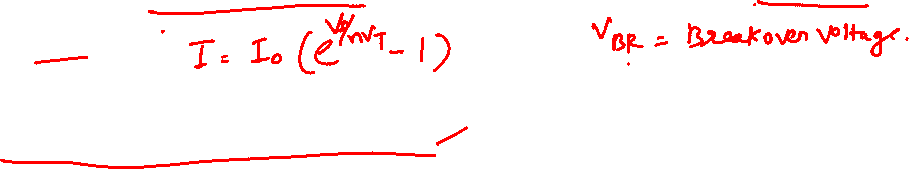 I = I₀ (e^(V_D/nV_T) - 1)
V_BR = Breakover voltage.